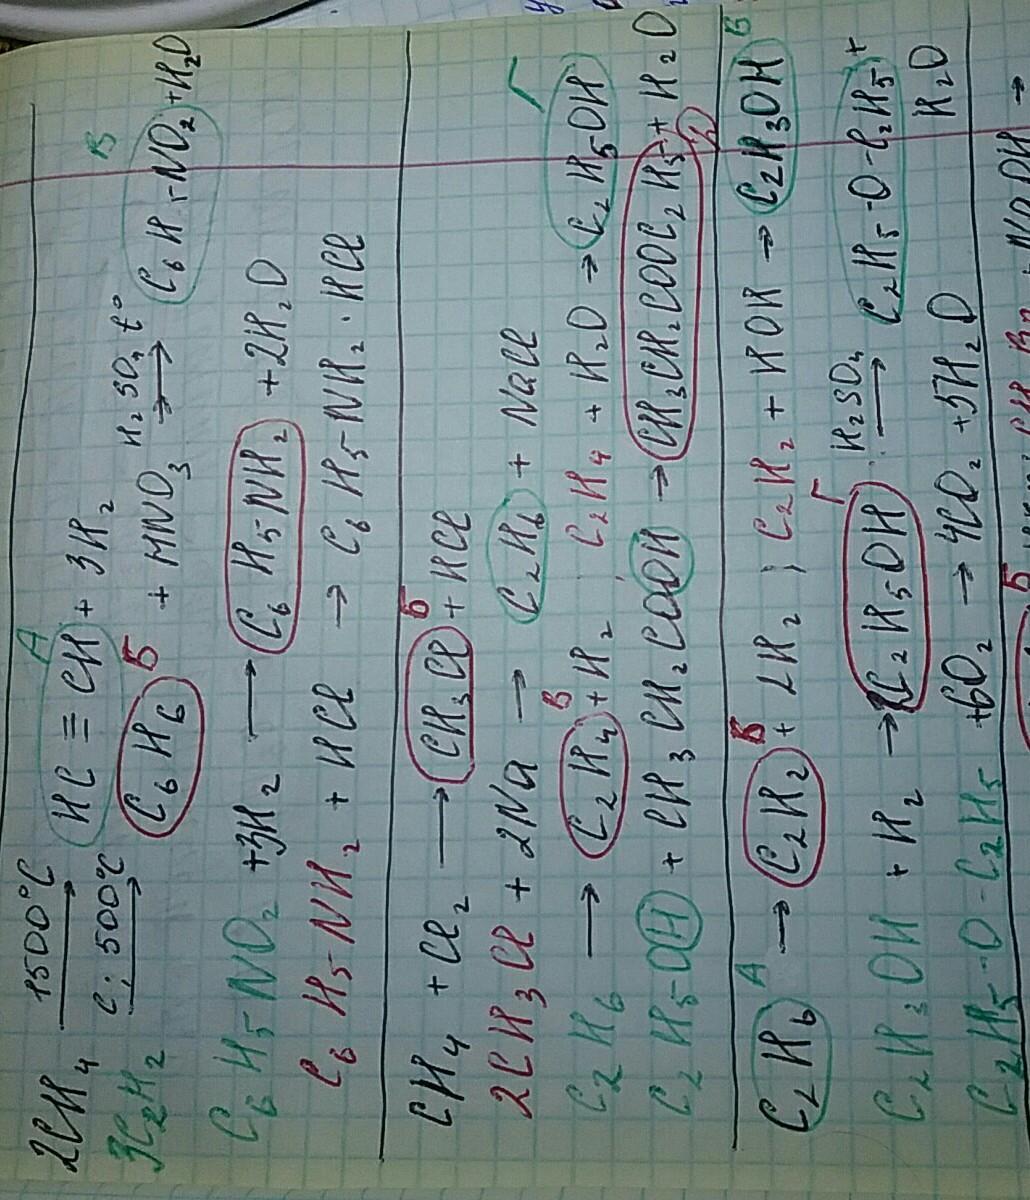 2CH₄ 1500°C → HC ≡ CH + 3H₂ А
3C₂H₂ C; 500°C → C₆H₆ Б + HNO₃ H₂SO₄ t° → C₆H₅NO₂ + H₂O В
C₆H₅NO₂ + 3H₂ → C₆H₅NH₂ + 2H₂O
C₆H₅NH₂ + HCl → C₆H₅NH₂ · HCl
CH₄ + Cl₂ → CH₃Cl Б + HCl
2CH₃Cl + 2Na → C₂H₆ + NaCl
C₂H₆ → C₂H₄ В + H₂; C₂H₄ + H₂O → C₂H₅OH Г
C₂H₅-OH + CH₃CH₂COOH → CH₃CH₂COOC₂H₅ + H₂O Д
C₂H₆ А → C₂H₂ Б + 2H₂; C₂H₂ + HOH → C₂H₃OH Б
C₂H₃OH + H₂ → C₂H₅OH Г H₂SO₄ → C₂H₅-O-C₂H₅ + H₂O
C₂H₅-O-C₂H₅ + 6O₂ → 4CO₂ + 5H₂O
Б NaOH →